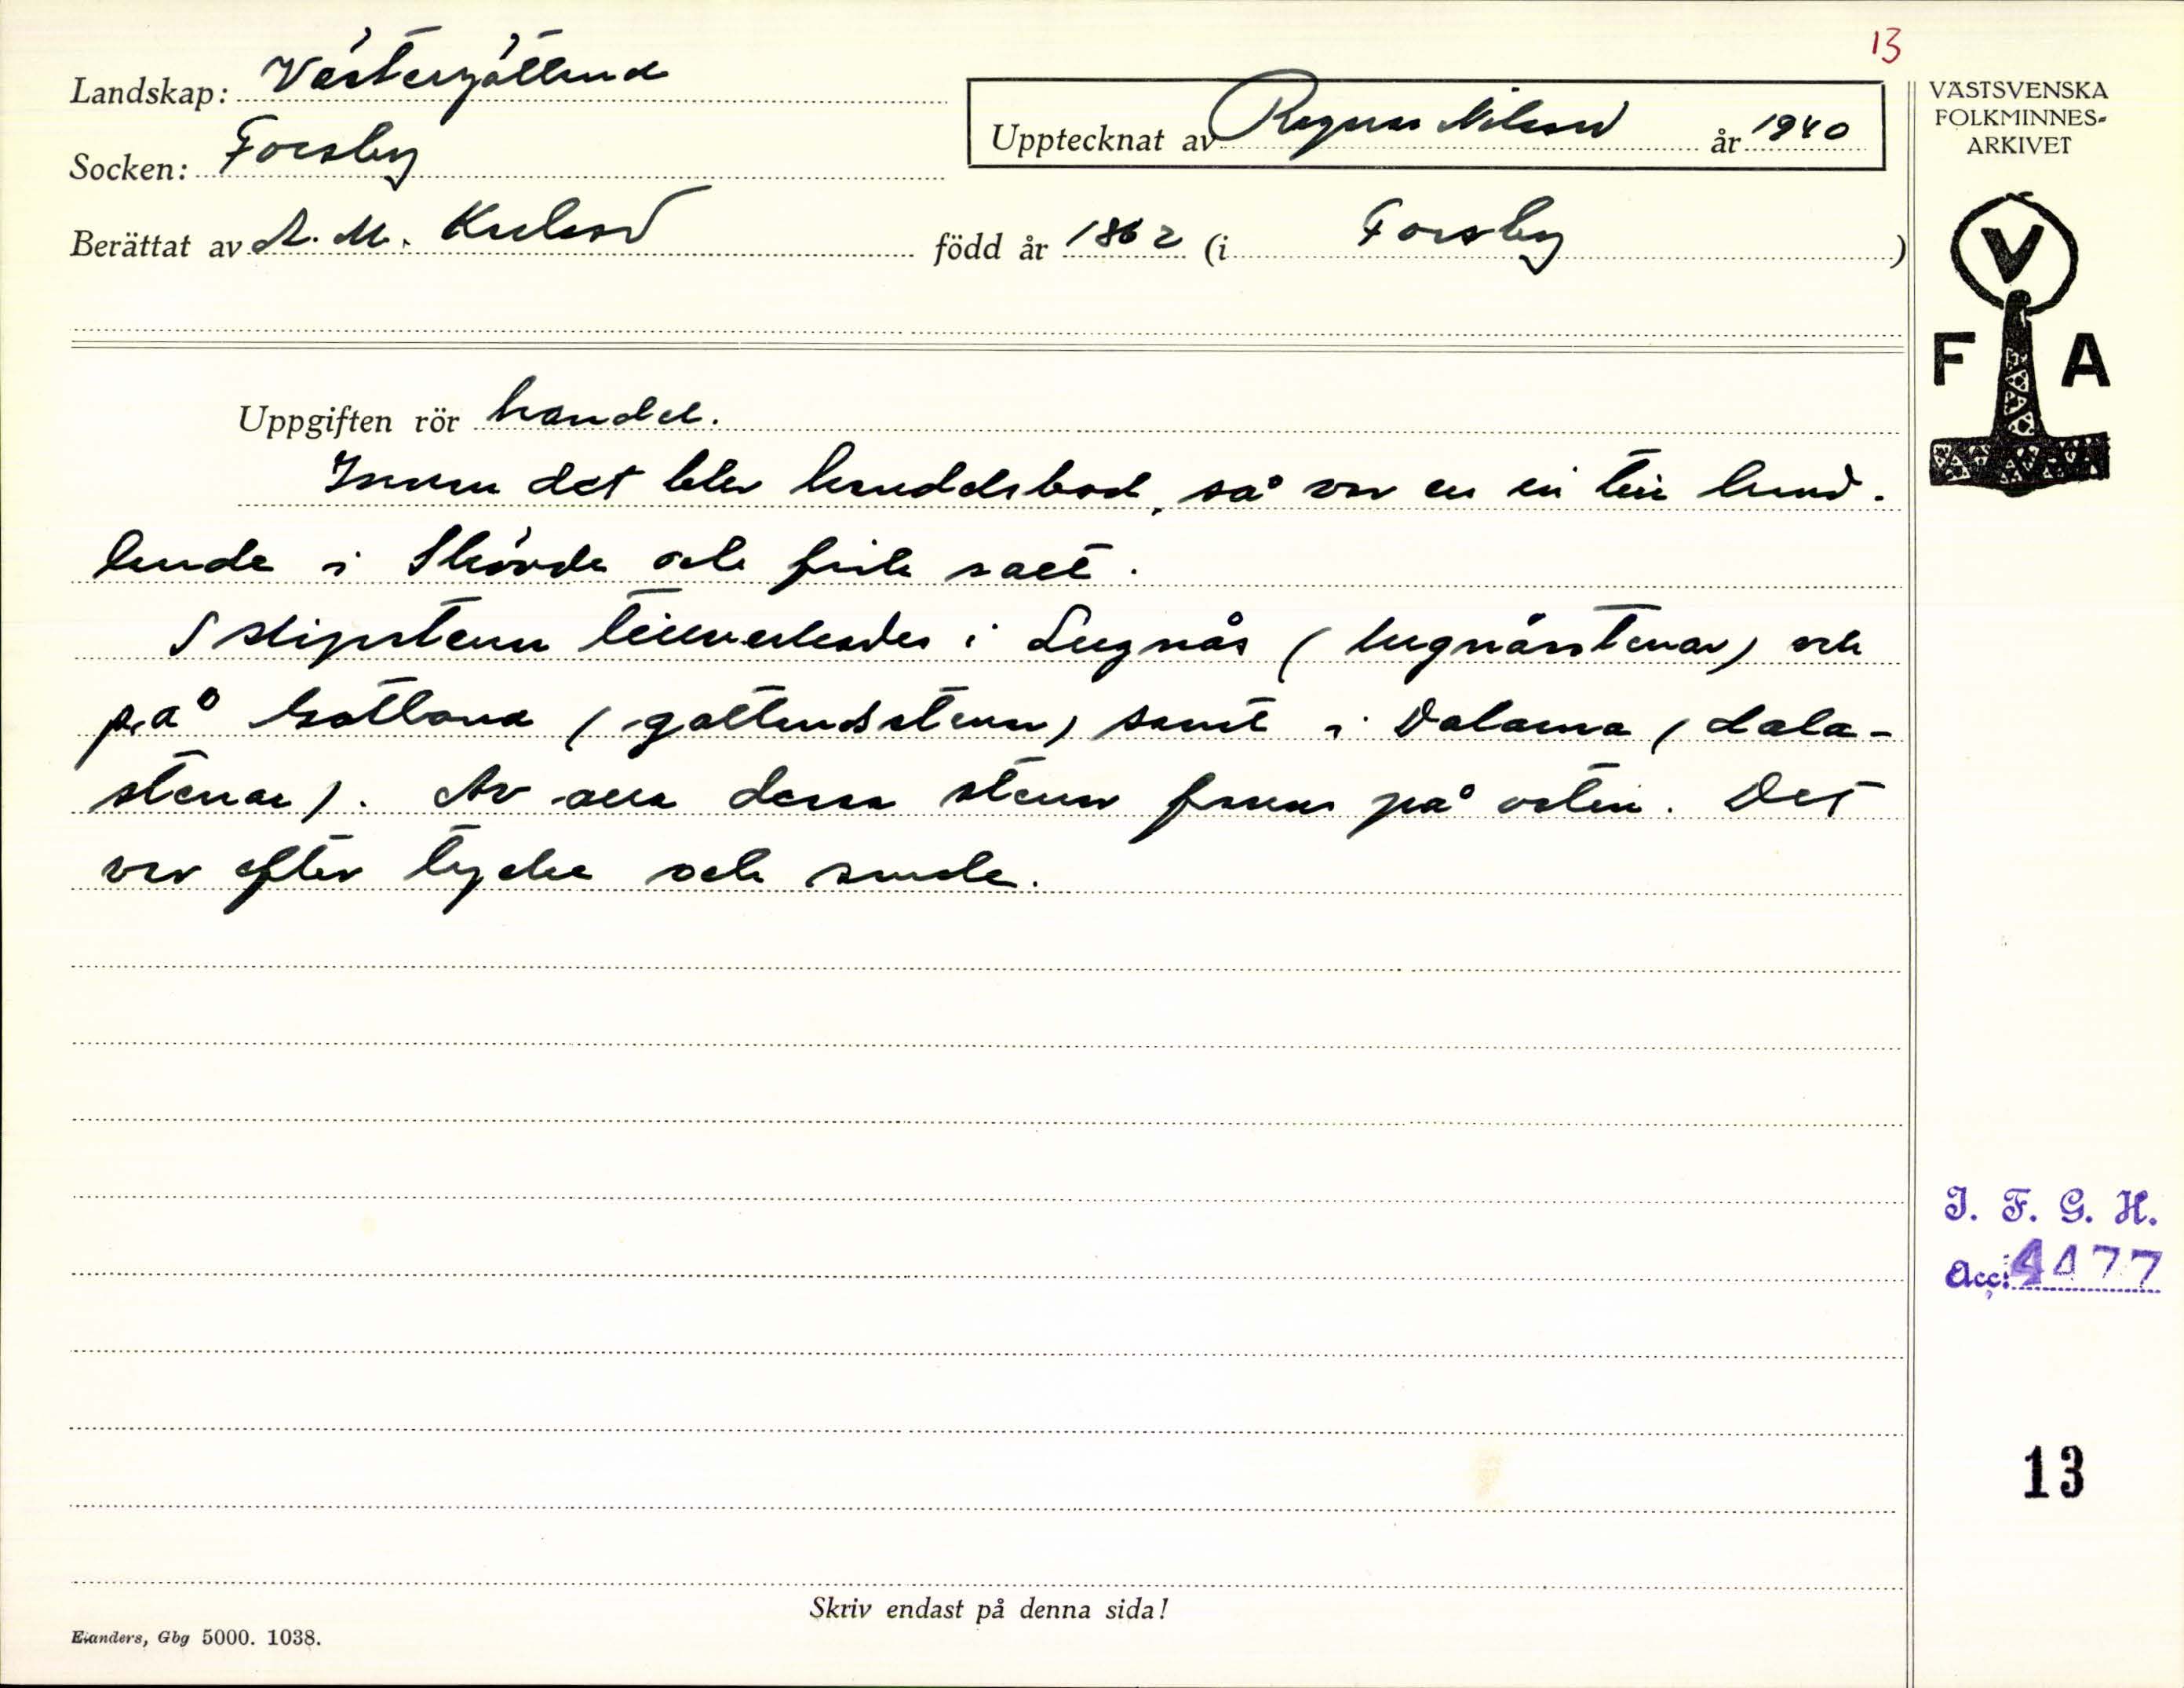 13
Landskap: Västergötland
Socken: Forsby
Upptecknat av Ragnar Nilsson år 1940
Berättat av A. M. Karlsson född år 1862 (i Forsby)
VÄSTSVENSKA
FOLKMINNES-
ARKIVET
V
F A
Uppgiften rör handel.
Innan det blev handelsbod, så var en in till hand-
lande i Skövde och fick salt.
Slipstenar tillverkades i Lugnås (lugnåsstenar) och
på Gotland (gotlandsstenar) samt i Dalarna (dala-
stenar). Av alla dessa stenar fanns på orten. Det
var efter tycke och smak.
I. F. G. H.
Acc: 4477
13
Skriv endast på denna sida!
Elanders, Gbg 5000. 1038.